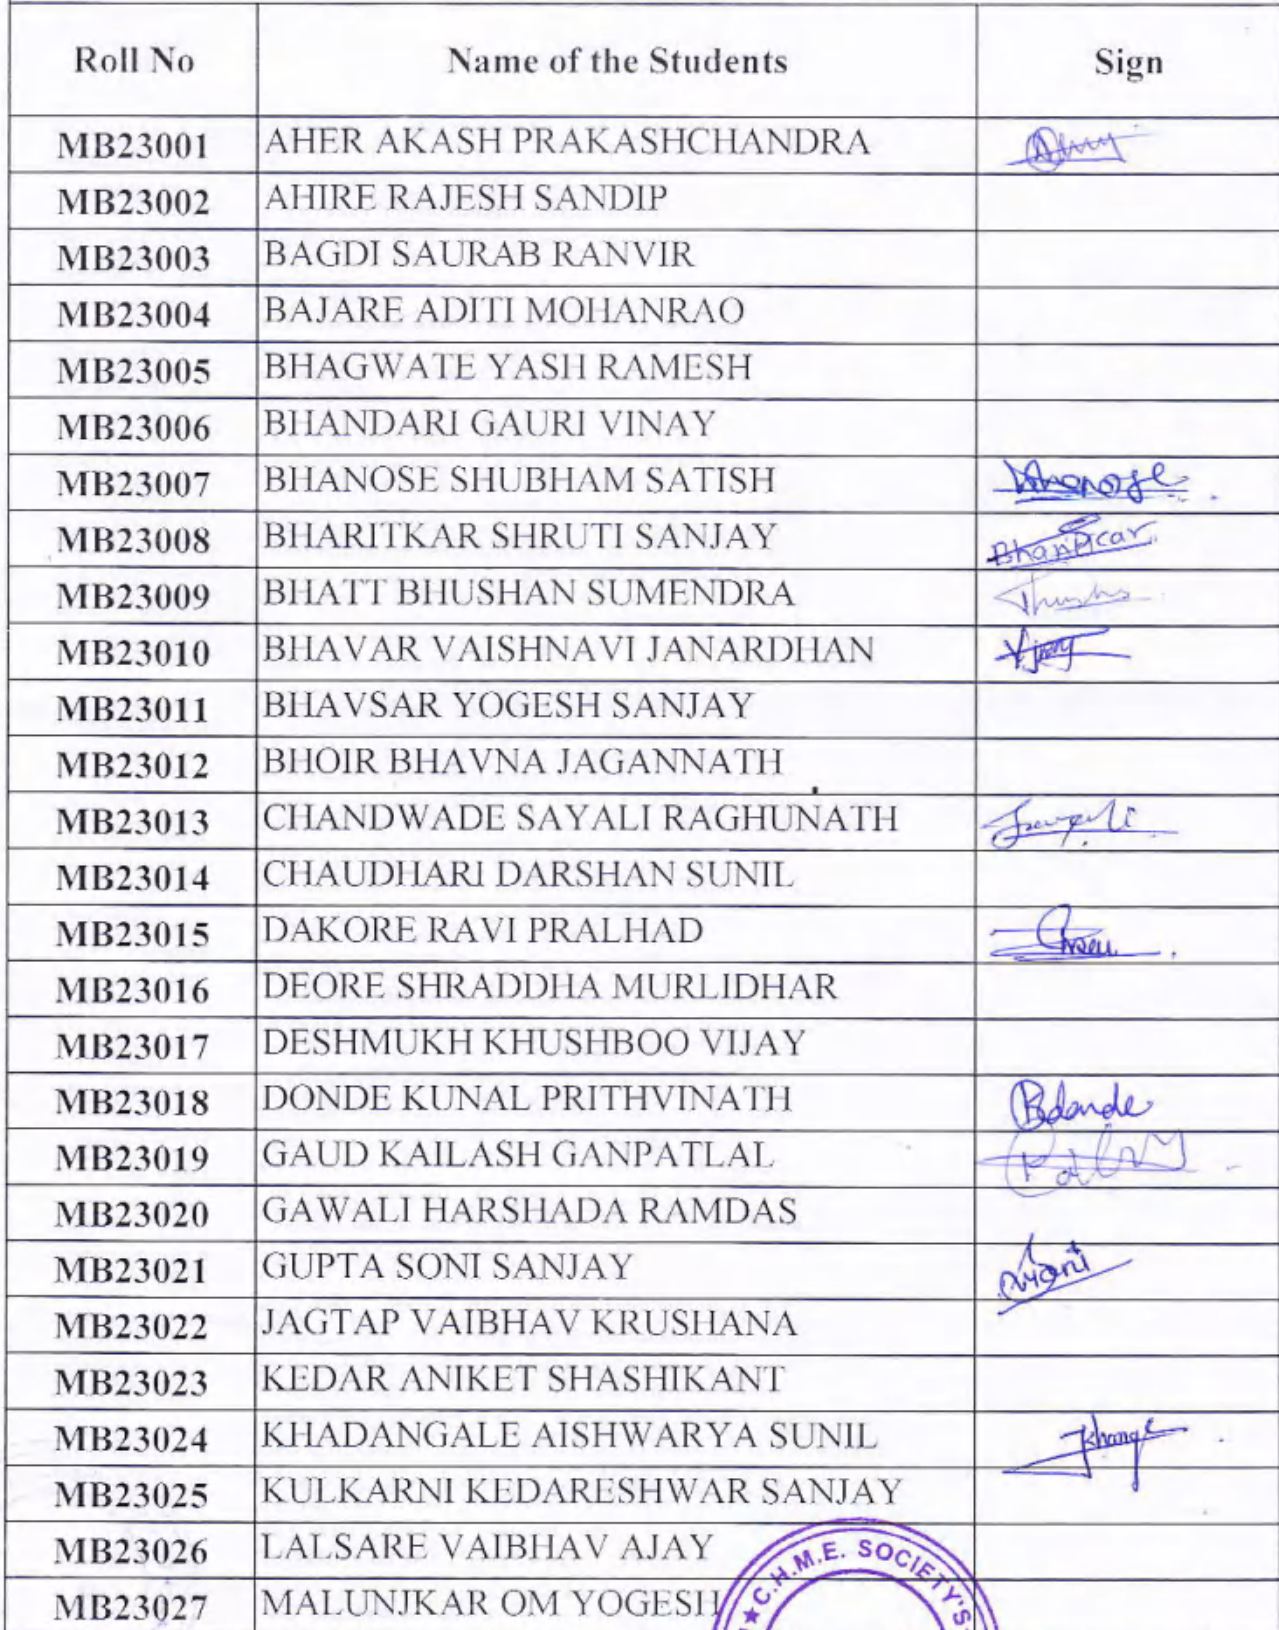 Roll No Name of the Students Sign
MB23001 AHER AKASH PRAKASHCHANDRA
MB23002 AHIRE RAJESH SANDIP
MB23003 BAGDI SAURAB RANVIR
MB23004 BAJARE ADITI MOHANRAO
MB23005 BHAGWATE YASH RAMESH
MB23006 BHANDARI GAURI VINAY
MB23007 BHANOSE SHUBHAM SATISH Bhanose
MB23008 BHARITKAR SHRUTI SANJAY Bharitkar
MB23009 BHATT BHUSHAN SUMENDRA
MB23010 BHAVAR VAISHNAVI JANARDHAN
MB23011 BHAVSAR YOGESH SANJAY
MB23012 BHOIR BHAVNA JAGANNATH
MB23013 CHANDWADE SAYALI RAGHUNATH Sayali
MB23014 CHAUDHARI DARSHAN SUNIL
MB23015 DAKORE RAVI PRALHAD
MB23016 DEORE SHRADDHA MURLIDHAR
MB23017 DESHMUKH KHUSHBOO VIJAY
MB23018 DONDE KUNAL PRITHVINATH
MB23019 GAUD KAILASH GANPATLAL
MB23020 GAWALI HARSHADA RAMDAS
MB23021 GUPTA SONI SANJAY
MB23022 JAGTAP VAIBHAV KRUSHANA
MB23023 KEDAR ANIKET SHASHIKANT
MB23024 KHADANGALE AISHWARYA SUNIL
MB23025 KULKARNI KEDARESHWAR SANJAY
MB23026 LALSARE VAIBHAV AJAY
MB23027 MALUNJKAR OM YOGESH
★C.H.M.E. SOCIETY'S